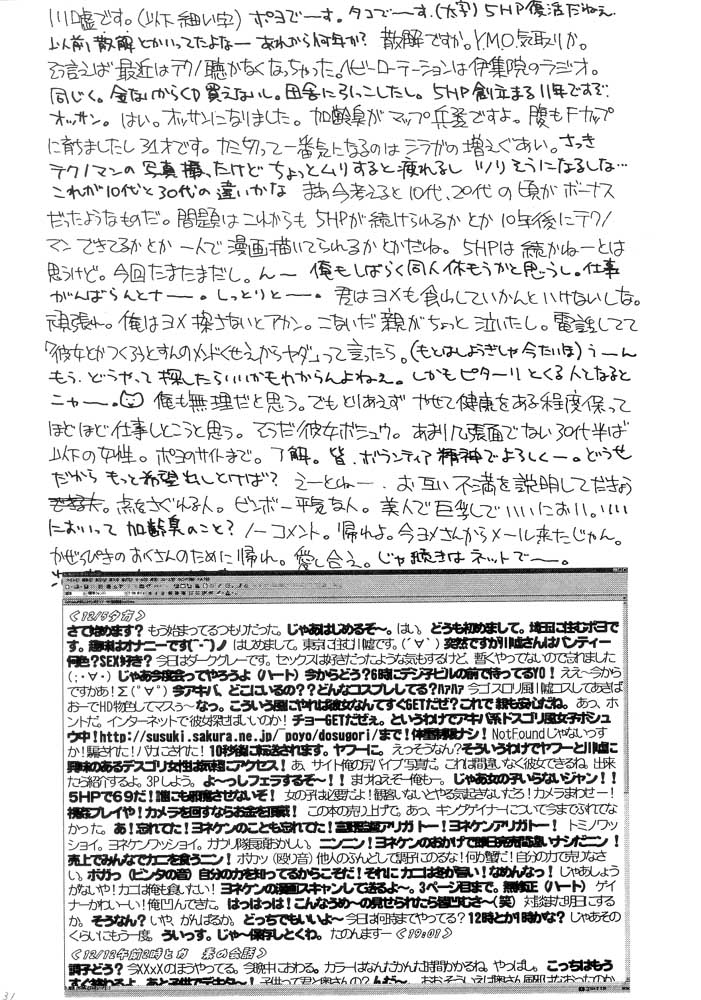 川嘘です。(以下細い字) ポヨでーす。タコでーす。(太字) 5HP復活だねえ
以前散解とかいってたよなー あれから何年か? 散解ですか。YMO気取りか。
そう言えば最近はテクノ聴かなくなっちゃった。ヘビーローテーションは伊集院のラジオ。
同じく。金ないからCD買えないし。田舎にひっこしたし。5HP創立まる11年ですぞ
オッサン。はい。オッサンになりました。加齢臭がマップ兵器ですよ。腹もFカップ
に育ちましたし31才です。カミ切って一番気になるのはシラガの増えぐあい。さっき
テクノマンの写真撮ったけどちょっとムリすると疲れるし ツリそうになるしな…
これが10代と30代の違いかな まあ今考えると10代、20代の頃がボーナス
だったようなものだ。問題はこれからも5HPが続けられるかとか10年後にテクノ
マンできてるかとか一人で漫画描いてられるかとかだね。5HPは続かねーとは
思うけど。今回たまたまだし。んー 俺もしばらく同人休もうかと思うし。仕事
がんばらんとナー。しっとりとー。君はヨメも食わしていかんといけないしな。
頑張れ。俺はヨメ探さないとアカン。こないだ親がちょっと泣いたし。電話してて
「彼女とかつくろうとすんのメンドくせえからヤダ」って言ったら。(もとはしょうぎしゃ今たいほ) うーん
もう、どうやって探したらいいかもわからんよねえ。しかもピターリとくる人となると
ニャー。俺も無理だと思う。でもとりあえず やせて健康をある程度保って
ほどほど仕事しとこうと思う。そうだ彼女ボシュウ。あまり几張面でない30代半ば
以下の女性。ポヨのサイトまで。了解。皆、ボランティア精神でよろしくー。どうせ
だからもっと希望出しとけば? えーとねー、お互い不満を説明してだきょう
点をさぐれる人。ビンボー平気な人。美人で巨乳でいいにおい。いい
において加齢臭のこと? ノーコメント。帰れよ。今ヨメさんからメール来たじゃん。
かぜっぴきのおくさんのために帰れ。愛し合え。じゃ続きはネットでー。
<12/5夕方>
さて始めます? もう始まってるつもりだった。じゃあはじめるぞ〜。はい。どうも初めまして。埼玉に住むポヨで
す。趣味はオナニーです(´ｰ`)ノ はじめまして。東京に住む川嘘です。(´∀`) 突然ですが川嘘さんはパンティー
何色?SEX好き? 今日はダークグレーです。セックスは好きだったような気もするけど、暫くやってないので忘れました
(;・∀・) じゃあ今度会ってやろうよ(ハート) 今からどう?6時にデジ子ビルの前で待ってるYO! ええ〜今から
ですかあ!Σ(ﾟ∀ﾟ) 今アキバ、どこにいるの??どんなコスプレしてる?ﾊｧﾊｧ 今ゴスロリ風川嘘コスしてあきば
おーでHD物色してマスぅ〜なっ。こういう風にやれば彼女なんてすぐGETだぜ?これで親も安心だね。あっ、ホ
ントだ。インターネットで彼女探せばいいのか! チョーGETだぜぇ。というわけでアキバ系ドスゴリ風女子ボシュ
ウ中!http://susuki.sakura.ne.jp/~poyo/dosugori/まで!体重制限ナシ! NotFoundじゃないっす
か!騙された!バカにされた! 10秒後に転送されます。ヤフーに。えっそうなん?そういうわけでヤフーと川嘘に
興味のあるデスゴリ女性は気軽にアクセス! あ、サイト俺の尻バイブ写真だ。これは間違いなく彼女できるね。出来
たら紹介するよ。3Pしよう。よ〜っしフェラするぞ〜!! まけねえぞ俺も〜。じゃあ女の子いらないジャン!!
5HPで69だ!誰にも邪魔させないぞ! 女の子は必要だよ!観客いないとやる気起きないだろ!カメラまわせー!
視姦プレイや!カメラを回すならお金を頂戴! この本の売り上げで。あっ、キングゲイナーについて今まで触れてな
かった。あ!忘れてた!ヨネケンのことも忘れてた!富野監督アリガトー!ヨネケンアリガトー! トミノワッ
ショイ。ヨネケンワッショイ。カナリ隊長恥ずかしい。ニンニン!ヨネケンのおかげで当日完売間違いナシだニン!
売上でみんなでカニを食うニン! ボカッ(殴り音) 他人のふんどしで調子にのるな!何が蟹だ!自分の力で売りなさ
い。ボガっ(ピンタの音) 自分の力を知ってるからこそだ!それにカニは冬が旨い!なめんなっ! じゃあしょう
がないや!カニは俺も食いたい! ヨネケンの漫画スキャンして送るよ〜。3ページ目まで。無修正(ハート) ゲイ
ナーかわいーい!俺凹んできた。はっはっは!こんなうめ〜の見せられたら皆凹むさ〜(笑) 対談また明日にする
か。そうなん? いや、がんばるか。どっちでもいいよ〜 今日は何時までやってる? 12時とか1時かな? じゃあその
くらいにもう一度。ういっす。じゃ〜保存しとくわ。たのんますー <19:01>
<12/12午前2時とか 裏の会話>
調子どう? 今XXXのほうやってる。今晩中におわる。カラーはなんだかんだ時間かかるね。やっぱし。こっちはもう
31